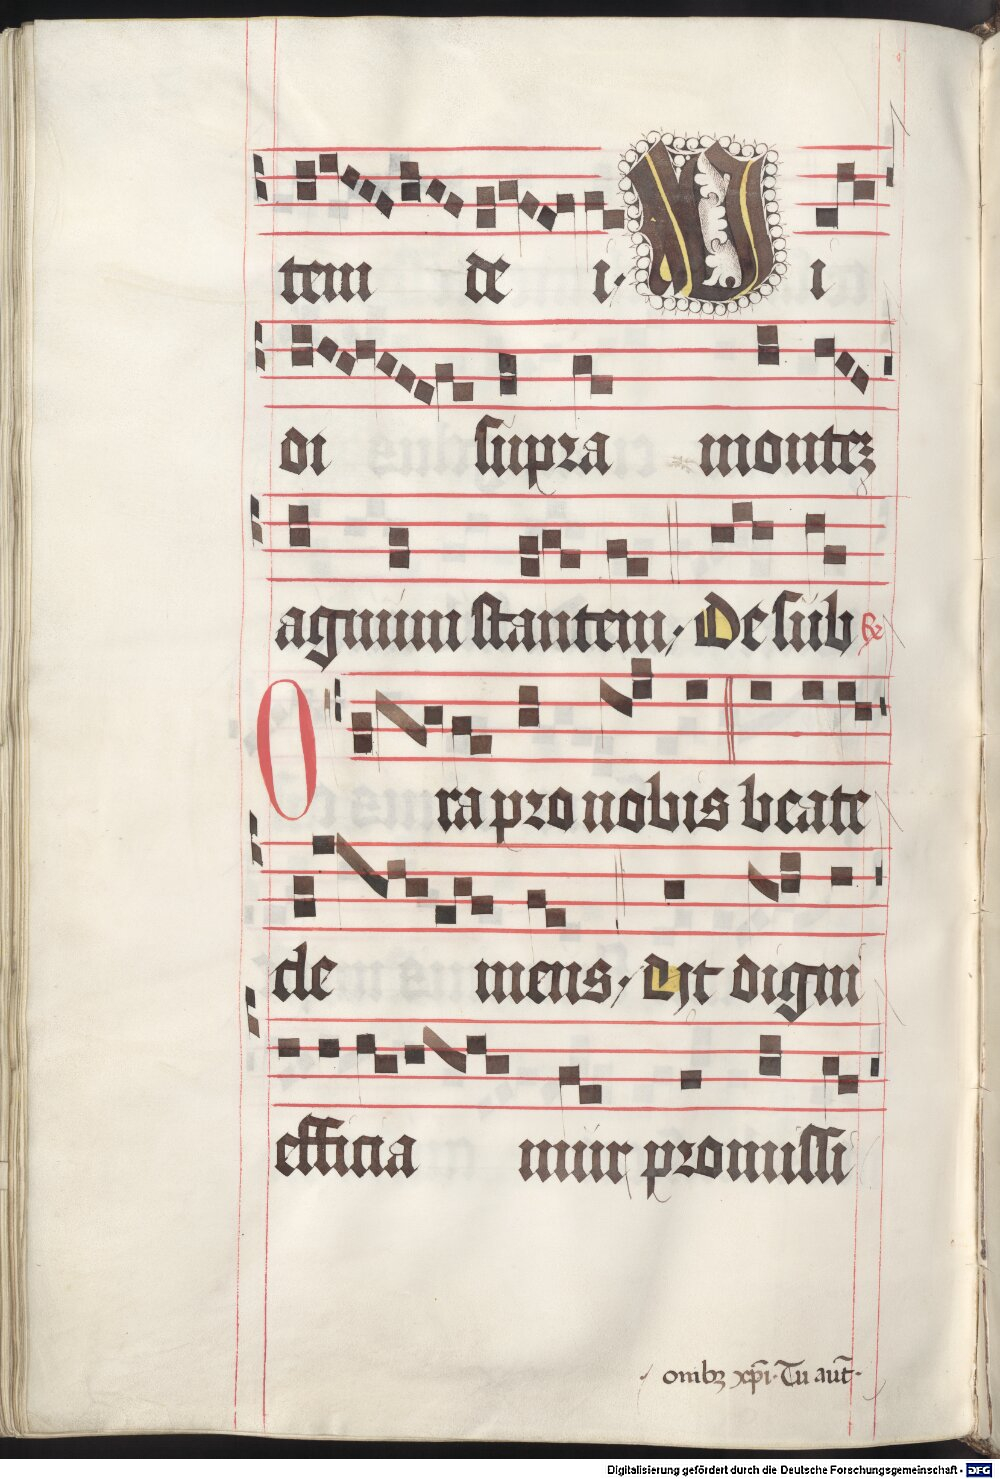 tem de i · V i
di supra montez
agnum stantem · De sub
O ra pro nobis beate
cle mens · Vt digni
efficia mur promissi
omībꝫ xp̄i · Tu aut̄ ·
Digitalisierung gefördert durch die Deutsche Forschungsgemeinschaft - DFG